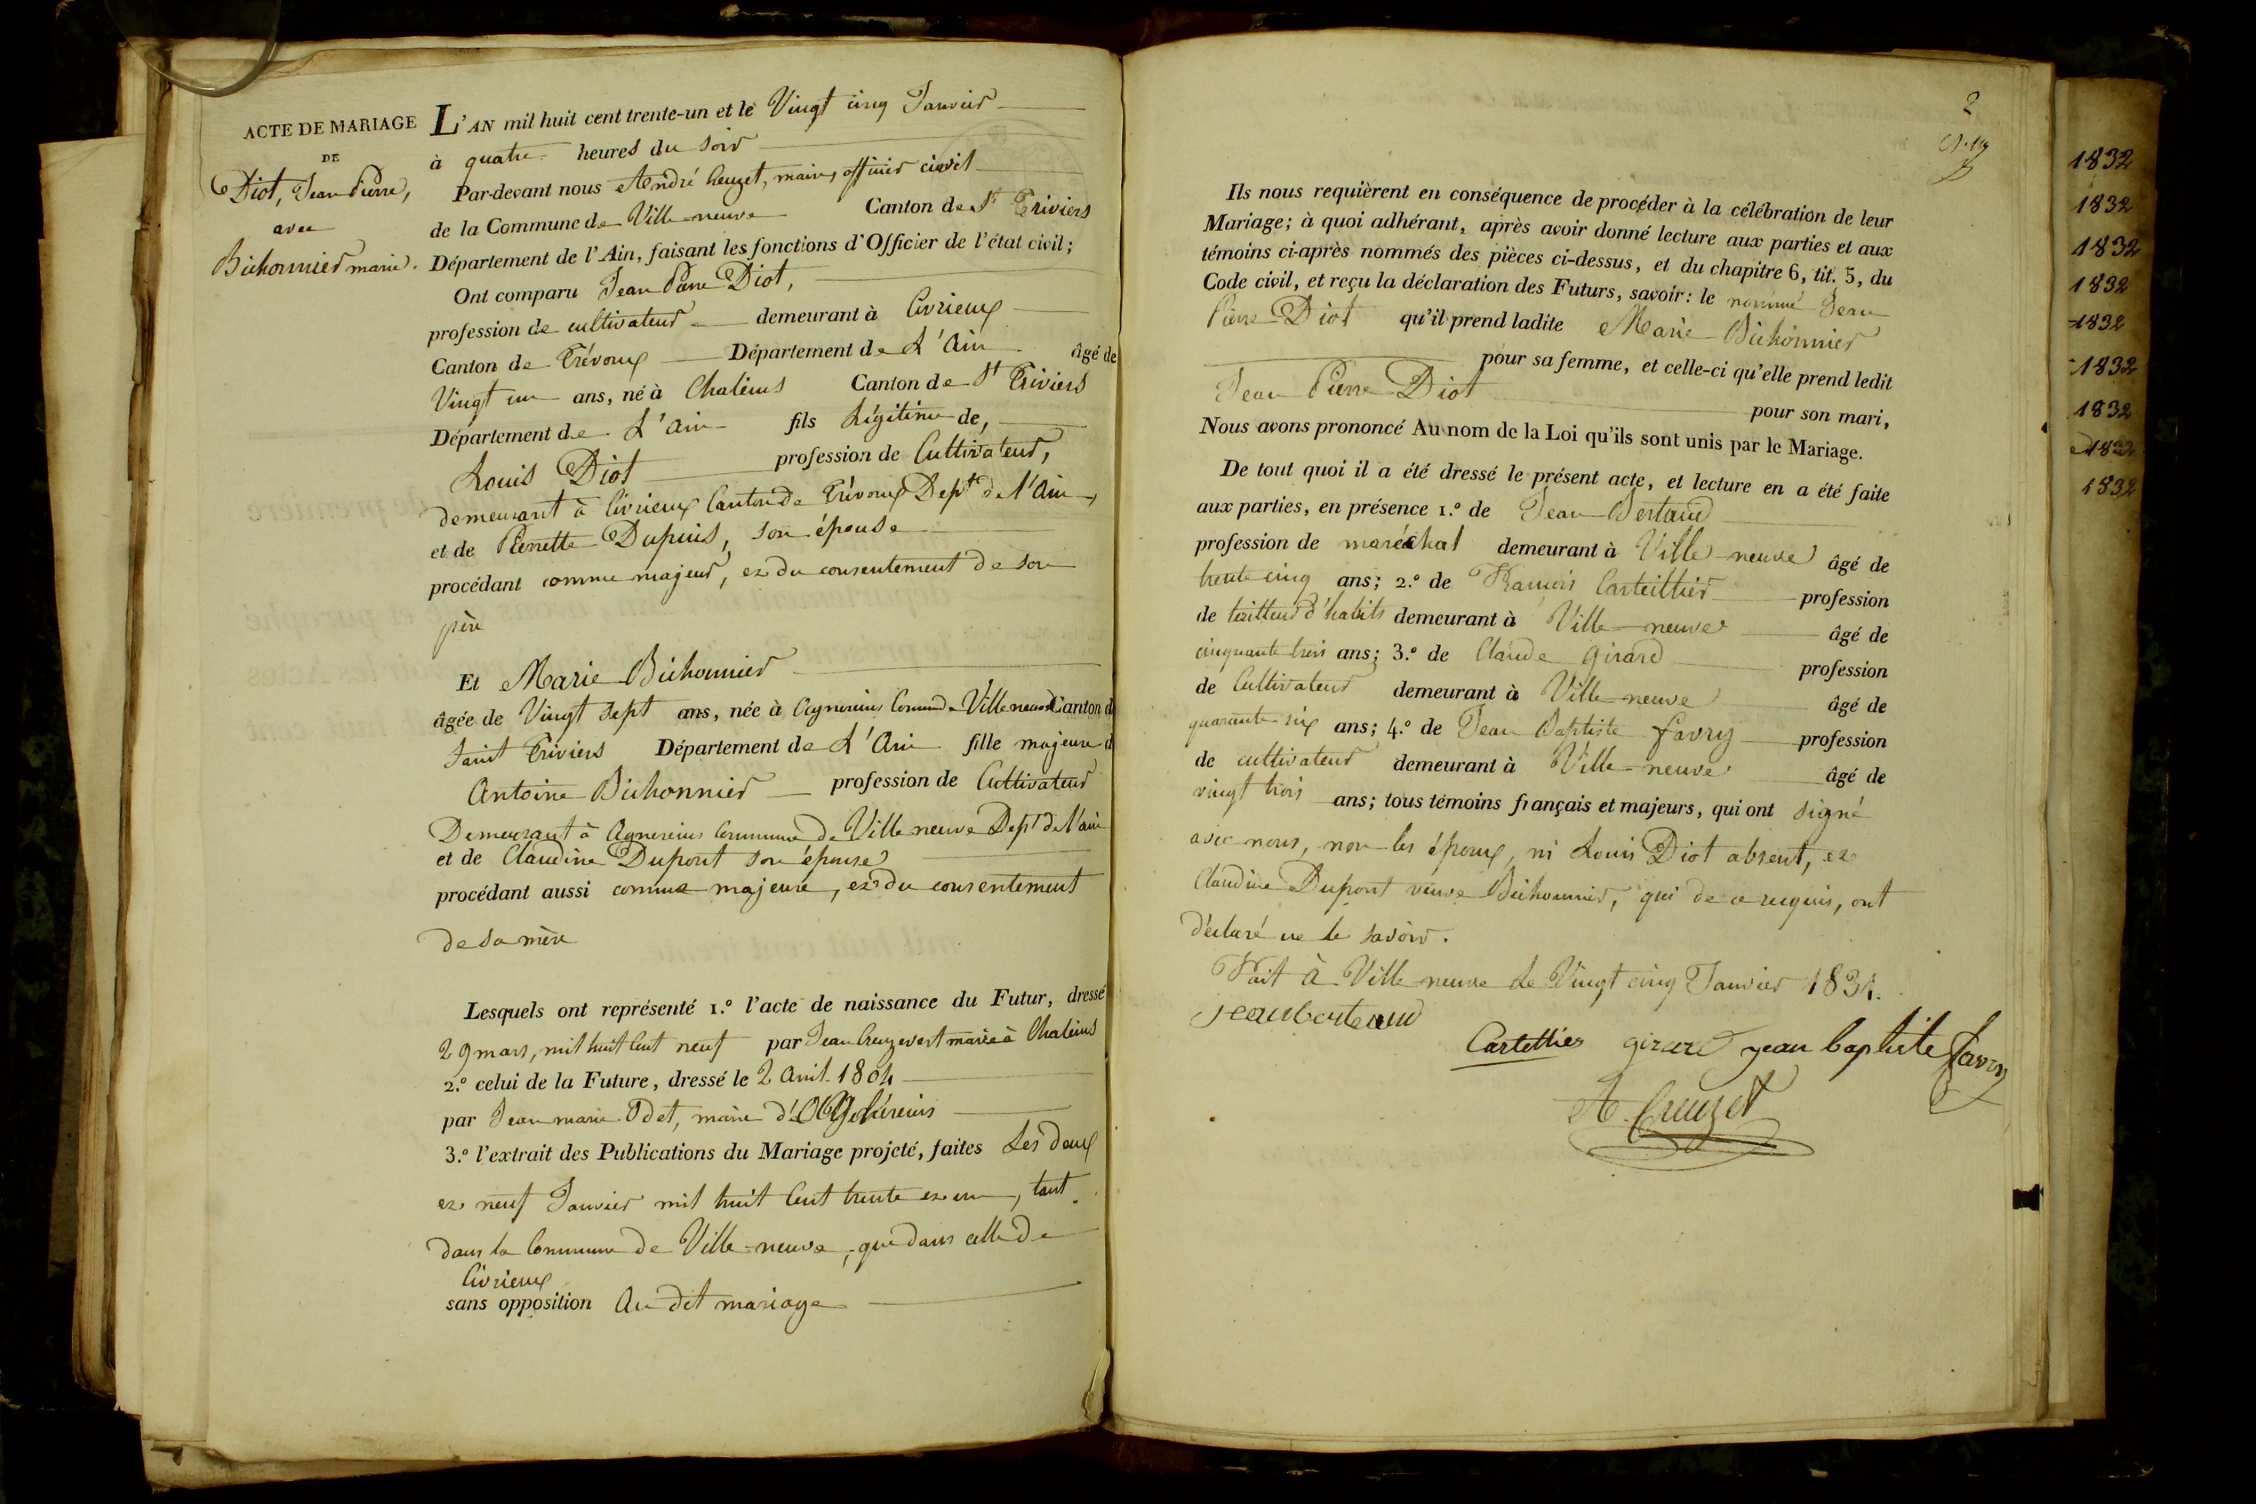 ACTE DE MARIAGE
DE
Diot, Jean Pierre,
avec
Bichonnier marie.
L'AN mil huit cent trente-un et le Vingt cinq Janvier
à quatre heures du soir
Par-devant nous André Creuzet, maire, officier civil
de la Commune de Ville-neuve Canton de St Triviers
Département de l'Ain, faisant les fonctions d'Officier de l'état civil;
Ont comparu Jean Pierre Diot,
profession de cultivateur demeurant à Civrieux
Canton de Trévoux Département de L'Ain âgé de
Vingt un ans, né à Chaleins Canton de St Triviers
Département de L'Ain fils Légitime de,
Louis Diot profession de Cultivateur,
demeurant à Civrieux Canton de Trévoux Dept de l'Ain,
et de Pierrette Dupuis, son épouse
procédant comme majeur, et du consentement de son
père
Et Marie Bichonnier
âgée de Vingt sept ans, née à Agnereins Comune de Ville neuve Canton de
Saint Triviers Département de L'Ain fille majeure d
Antoine Bichonnier profession de Cultivateur
Demeurant à Agnereins Commune de Ville neuve Dept de l'ain
et de Claudine Dupont son épouse
procédant aussi comme majeure, et du consentement
de sa mère
Lesquels ont représenté 1.º l'acte de naissance du Futur, dressé
29 mars, mil huit Cent neuf par Jean Creuzevert maire à Chaleins
2.º celui de la Future, dressé le 2 Avril 1804
par Jean marie Odet, maire
3.º l'extrait des Publications du Mariage projeté, faites Les deux
et neuf Janvier mil huit Cent trente et un, tant
dans la Commune de Ville-neuve, que dans celle de
Civrieux
sans opposition Au dit mariage
2
Ils nous requièrent en conséquence de procéder à la célébration de leur
Mariage; à quoi adhérant, après avoir donné lecture aux parties et aux
témoins ci-après nommés des pièces ci-dessus, et du chapitre 6, tit. 5, du
Code civil, et reçu la déclaration des Futurs, savoir: le nommé Jean
Pierre Diot qu'il prend ladite Marie Bichonnier
pour sa femme, et celle-ci qu'elle prend ledit
Jean Pierre Diot pour son mari,
Nous avons prononcé Au nom de la Loi qu'ils sont unis par le Mariage.
De tout quoi il a été dressé le présent acte, et lecture en a été faite
aux parties, en présence 1.º de Jean Bertaud
profession de maréchal demeurant à Ville-neuve âgé de
trente cinq ans; 2.º de Francois Carteillier profession
de tailleur d'habits demeurant à Ville-neuve âgé de
cinquante trois ans; 3.º de Claude Girard profession
de Cultivateur demeurant à Ville neuve âgé de
quarante six ans; 4.º de Jean Baptiste favry profession
de cultivateur demeurant à Ville-neuve âgé de
vingt trois ans; tous témoins français et majeurs, qui ont signé
avec nous, non les époux, ni Louis Diot absent, et
Claudine Dupont veuve Bichonnier, qui de ce requis, ont
déclaré ne le savoir.
Fait à Ville neuve Le Vingt cinq Janvier 1831.
jean bertaud
Cartellier girard jean baptiste favry
A. Creuzet
1832
1832
1832
1832
1832
1832
1832
1832
1832